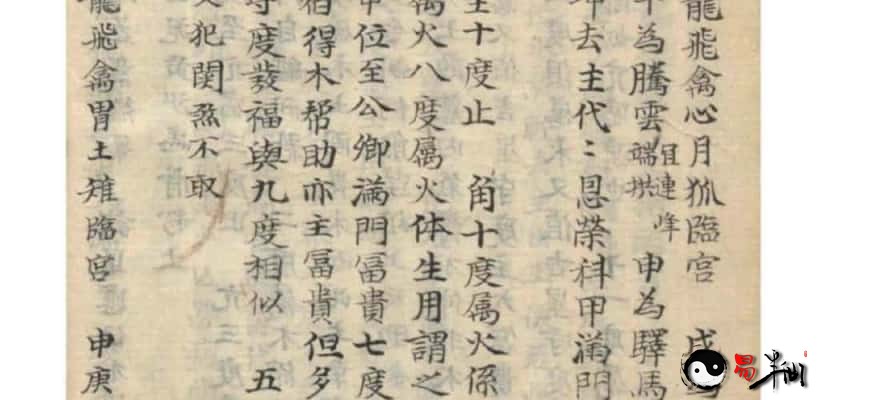 龍飛禽心月狐臨宮 戌為
午為騰雲 俎連峰
端拱 申為驛馬
坤去主代〻恩榮科甲滿門
至十度止 角十度属火係
属火八度属火体生用謂之
中位至公卿滿門冨貴七度
宿得木帮助亦主冨貴但多
等度發福與九度相似 五
犯関煞不取
龍飛禽胃土雉臨宮 申庚
易半仙